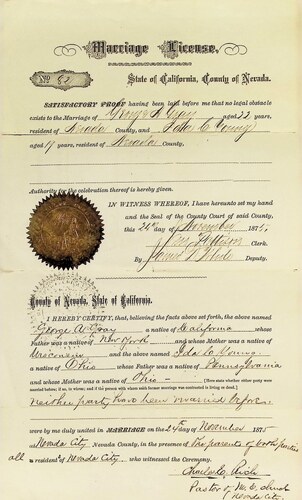 Marriage License.
No.
State of California, County of Nevada.
SATISFACTORY PROOF having been laid before me that no legal obstacle
exists to the Marriage of George A. Gray aged 22 years,
resident of Nevada County, and C. Young
aged 19 years, resident of Nevada County,
Authority for the celebration thereof is hereby given.
IN WITNESS WHEREOF, I have hereunto set my hand
and the Seal of the County Court of said County,
this 24th day of November 1875
Clerk.
By James Deputy.
County of Nevada, State of California.
I HEREBY CERTIFY, that believing the facts above set forth, the above named
George A. Gray a native of California whose
Father was a native of New York and whose Mother was a native of
Wisconsin and the above named Ida C. Young
a native of Ohio whose Father was a native of Pennsylvania
and whose Mother was a native of Ohio
neither party have been married before.
were by me duly united in MARRIAGE on the 24th day of November 1875
at Nevada City, Nevada County, in the presence of the parents of both parties
all residents of Nevada City, who witnessed the Ceremony.
Charles C. Rich
Pastor of M. E. Church
Nevada City.